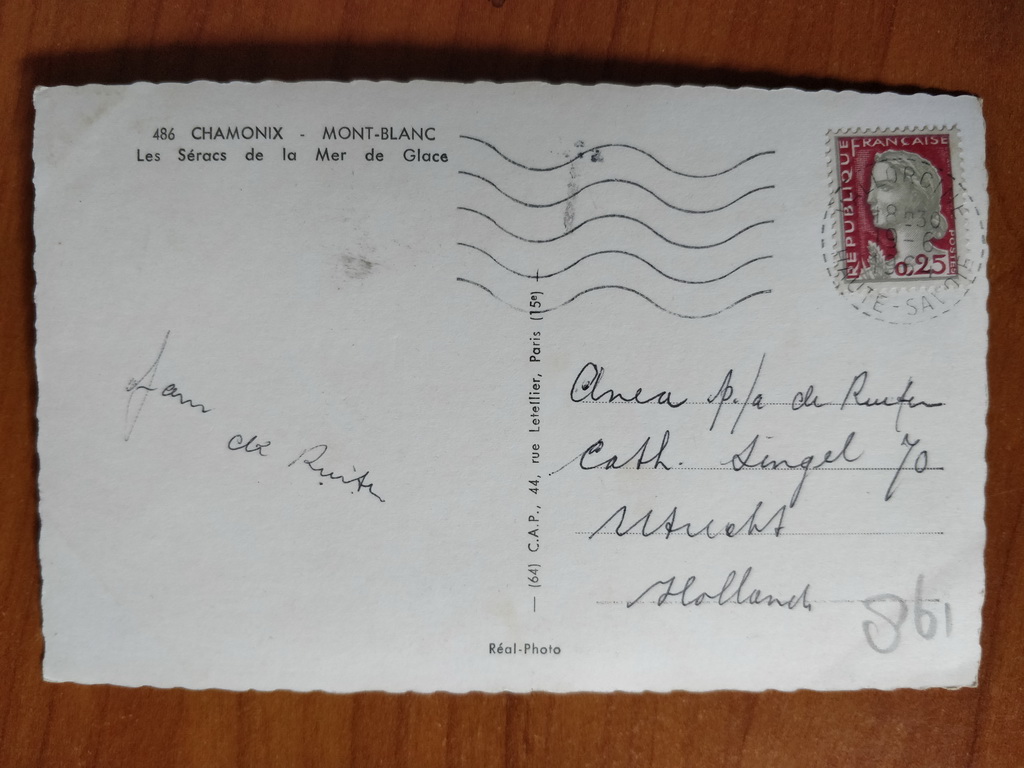 486 CHAMONIX - MONT-BLANC
Les Séracs de la Mer de Glace
RÉPUBLIQUE FRANÇAISE
POSTES
0,25
18 30
9 - 6
HAUTE-SAVOIE
— (64) C.A.P., 44, rue Letellier, Paris (15e) —
Jan
de Ruiter
Anea p/a de Ruiter
Cath. Singel 70
Utrecht
Holland
Réal-Photo